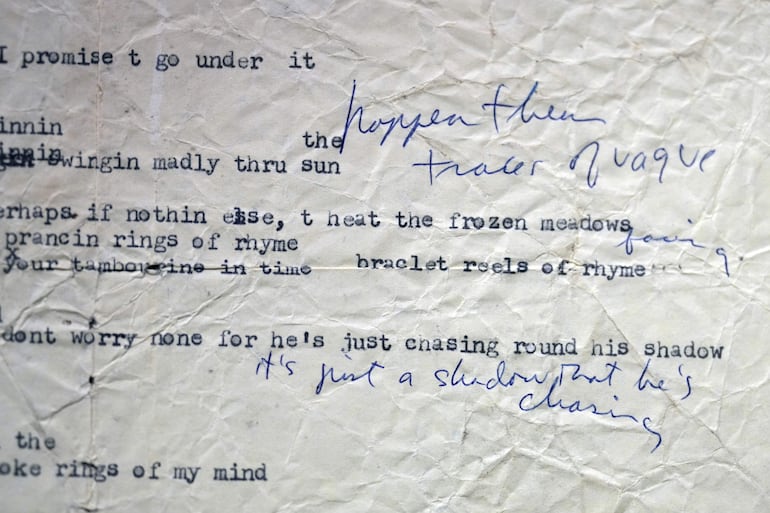 I promise t go under it
innin
the
swingin madly thru sun
traces of vague
erhaps if nothin else, t heat the frozen meadows
prancin rings of rhyme
your tambourine in time braclet reels of rhyme
dont worry none for he's just chasing round his shadow
it's just a shadow that he's
chasing
the
oke rings of my mind